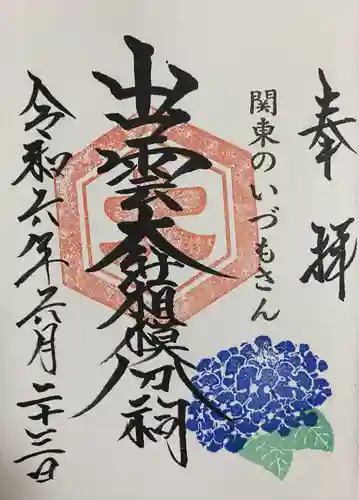 奉拝
関東のいづもさん
出雲大社相模分祠
令和六年六月二十三日